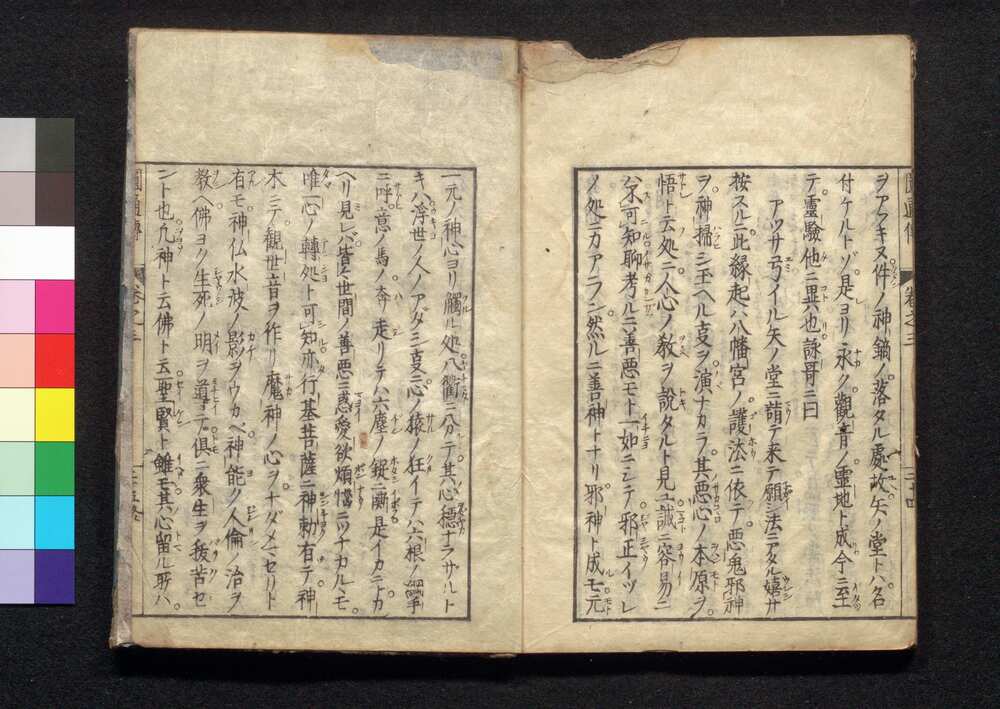 ヲアラキヌ件ノ神鏑ノ落タル處故矢ノ堂トハ名
付ケルトゾ是ヨリ永ク觀音ノ靈地ト成今ニ至
テ靈驗他ニ異ハ也詠哥ニ曰
アツサ弓イル矢ノ堂ニ詣テ来テ願シ法ニアタル嬉サ
按スルニ此縁起ハ八幡宮ノ護法ニ依テ悪鬼邪神
ヲ神掃シ玉ヘル㕝ヲ演ナカラ其悪心ノ本原ヲ
悟ト云処ニ人心ノ教ヲ説タルト見ユ誠ニ容易ニ
ハ不可知聊考ルニ善悪モト一如ニシテ邪正イツレ
ノ処ニカアラン然ルニ善神トナリ邪神ト成モ元
一元ノ神心ヨリ觸ル処八衢ニ分テ其心徳ナラサルト
キハ浮世ノ人ノアダシ㕝ニ心ノ猿ノ狂イテハ六根ノ綱手
ニ呼意ノ馬ノ奔走リテハ六塵ノ絆ニ繋是イカニトカ
ヘリ見レバ皆世間ノ善悪ニ惑愛欲煩惱ニツナカルヽモ
唯一心ノ轉処ト可知亦行基菩薩ニ神勅有テ神
木ニテ観世音ヲ作リ魔神ノ心ヲナダメマセリト
有モ神仏水波ノ影ヲウカベ神能ク人倫治ヲ
教ヘ佛ヨク生死ノ明ヲ導テ倶ニ衆生ヲ拔苦セ
ント也凢神ト云佛ト云聖賢ト雖モ其心留ル所ハ
圓通傳
卷之三